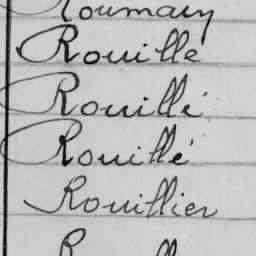 Roumain
Rouille
Rouillé
Rouillé
Rouillier